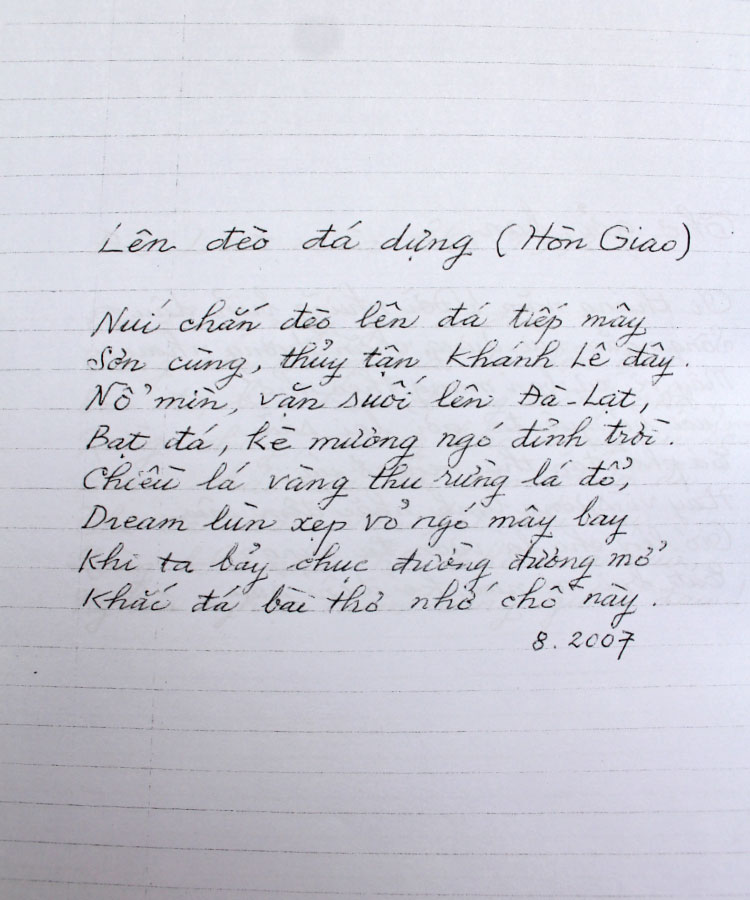 Lên đèo đá dựng (Hòn Giao)
Núi chắn đèo lên đá tiếp mây
Sơn cùng, thủy tận Khánh Lê đây.
Nổ mìn, vặn suối lên Đà-Lạt,
Bạt đá, kè mương ngó đỉnh trời.
Chiều lá vàng thu rừng lá đổ,
Dream lùn xẹp vỏ ngó mây bay
Khi ta bảy chục đường đường mở
Khắc đá bài thơ nhớ chỗ này.
8.2007